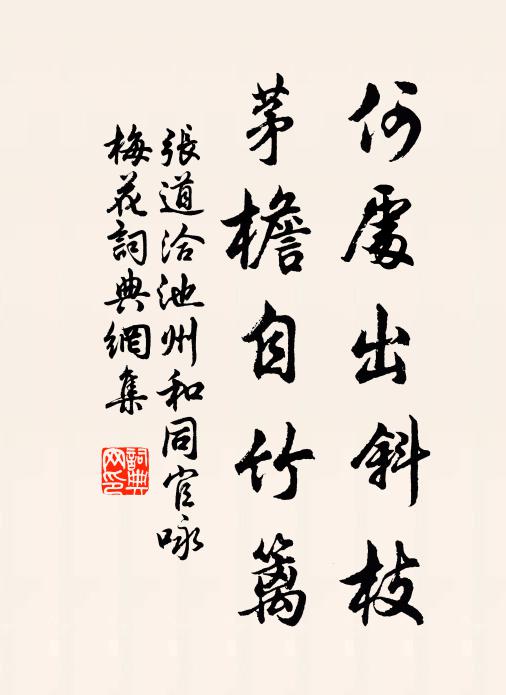 何處出斜枝
茅檐自竹籬
張道洽池州和同官咏
梅花詞典網集
詞典網印